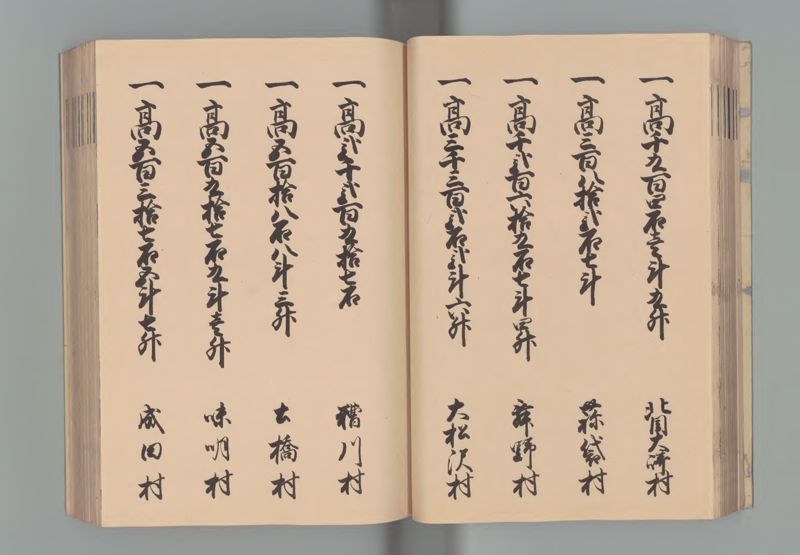 一高千九百四石壱斗九升 北目大崎村
一高三百八拾弐石七斗 蒜袋村
一高千弐百六拾九石七斗四升 舞野村
一高三千三百弐石弐斗六升 大松沢村
一高弐千弐百九拾七石 糟川村
一高五百拾八石八斗三升 土橋村
一高五百九拾七石九斗壱升 味明村
一高五百三拾七石五斗七升 成田村